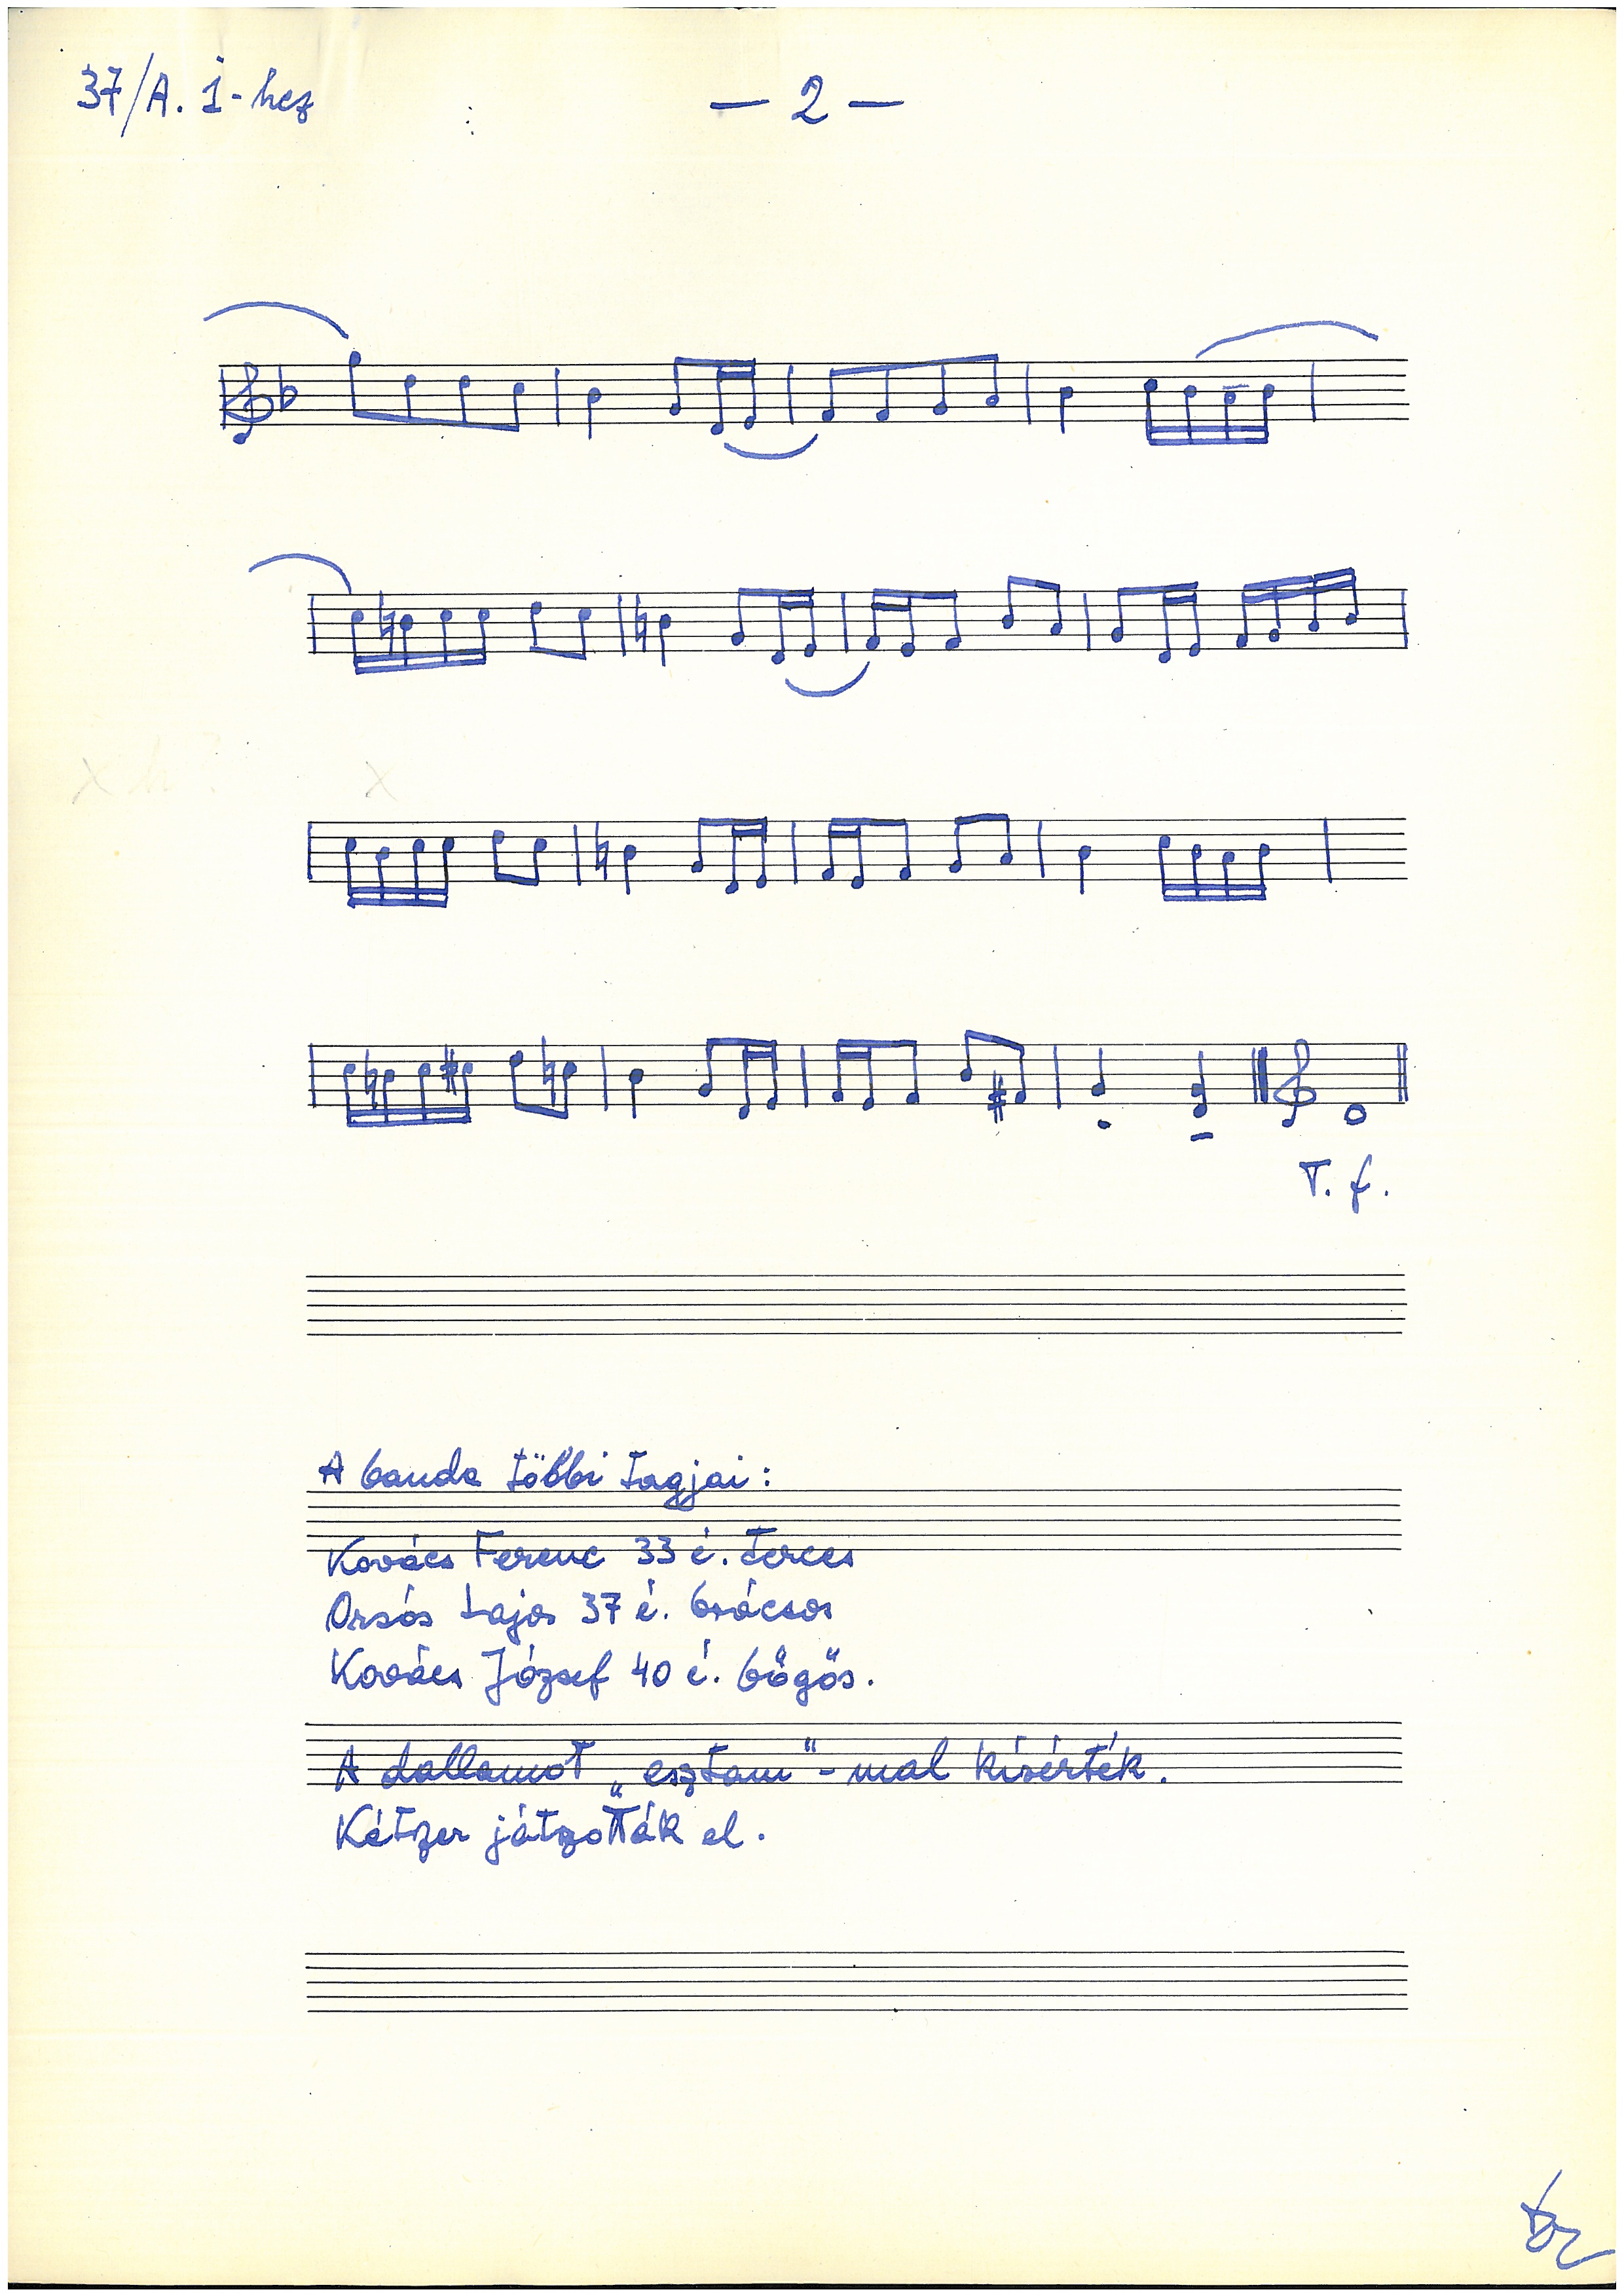 37/A. 1-hez
— 2 —
T. f.
A banda többi tagjai:
Kovács Ferenc 33 é. terces
Orsós Lajos 37 é. brácsos
Kovács József 40 é. bőgős.
A dallamot „esztam"-mal kísérték.
Kétzer játzották el.